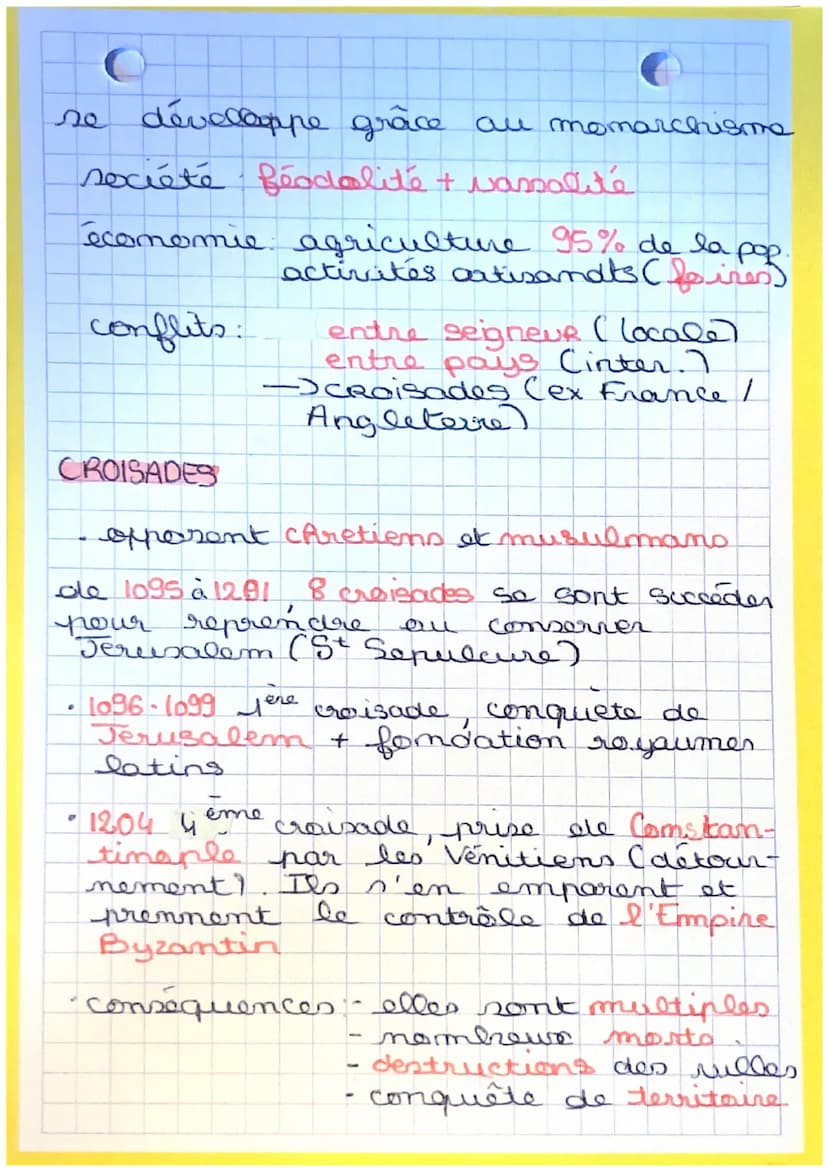 se développe grâce au monarchisme
société : féodalité + vassalité
économie : agriculture 95% de la pop.
activités artisanats (foires)
conflits : entre seigneur (locale)
entre pays (inter.)
→ croisades (ex France /
Angleterre)
CROISADES
· opposent chretiens et musulmans
de 1095 à 1291, 8 croisades se sont succéder
pour reprendre ou conserver
Jerusalem (St Sepulcure)
· 1096-1099 1ère croisade, conquête de
Jérusalem + fondation royaumes
latins
· 1204 4ème croisade, prise de Constan-
tinople par les Vénitiens (détour-
nement). Ils s'en emparent et
prennent le contrôle de l'Empire
Byzantin
· conséquences : - elles sont multiples
- nombreux morts.
- destructions des villes
- conquête de territoire